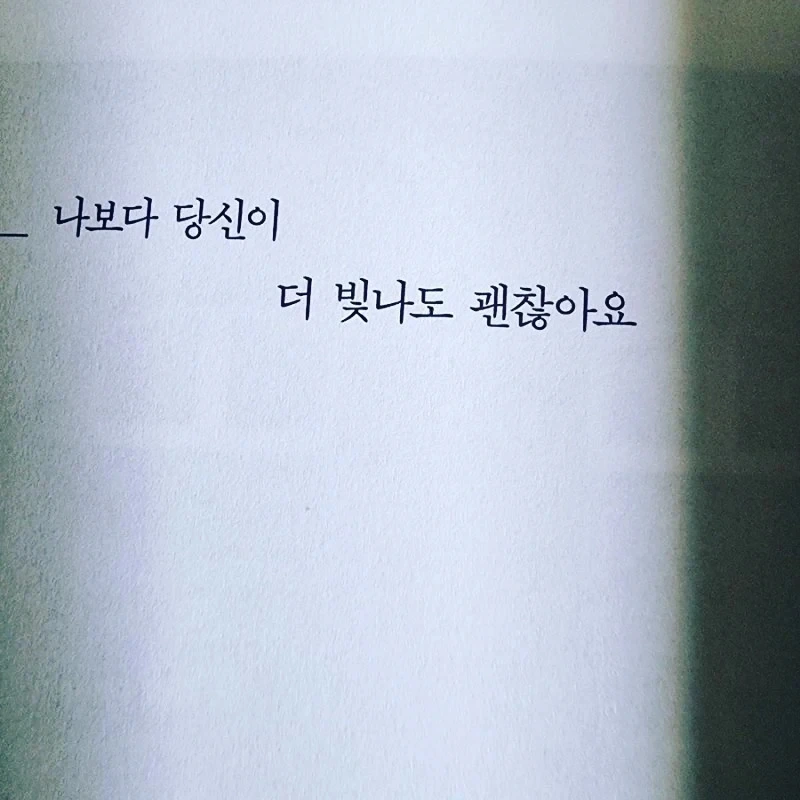 _ 나보다 당신이
더 빛나도 괜찮아요